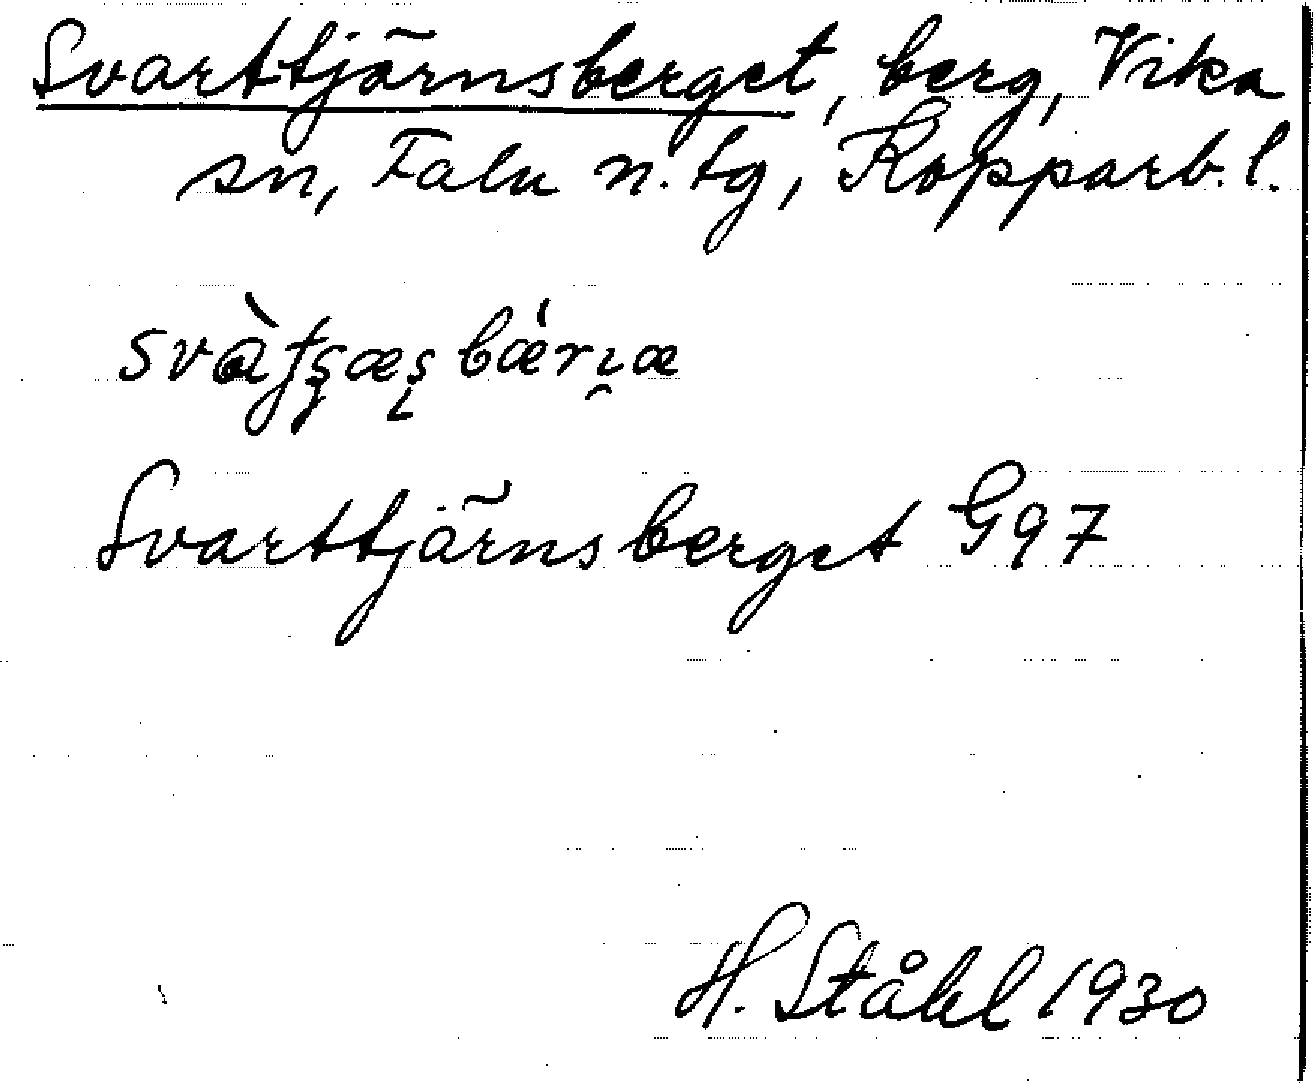 Svarttjärnsberget, berg, Vika
sn, Falu n. tg, Kopparb. l.
Svarttjärnsberget G97
H. Ståhl 1930